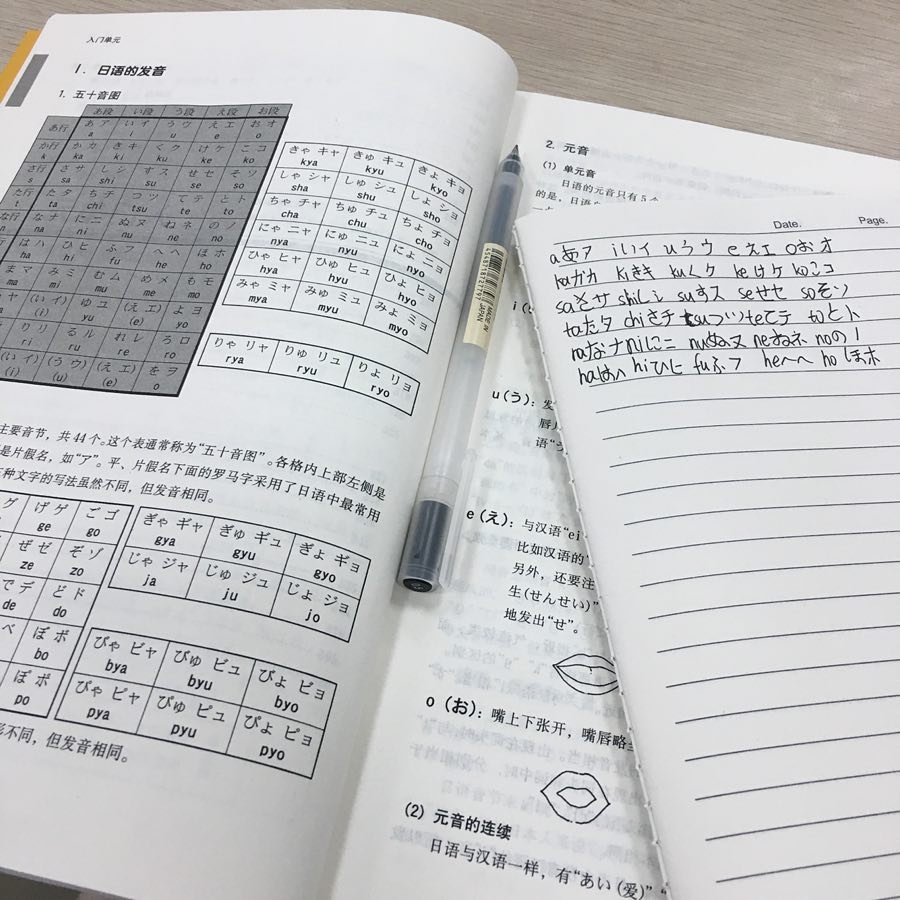 入门单元
1. 日语的发音
1. 五十音图
あ段 い段 う段 え段 お段
あ行 あ ア い イ う ウ え エ お オ
a i u e o
か行 か カ き キ く ク け ケ こ コ
k ka ki ku ke ko
さ行 さ サ し シ す ス せ セ そ ソ
s sa shi su se so
た行 た タ ち チ つ ツ て テ と ト
t ta chi tsu te to
な行 な ナ に ニ ぬ ヌ ね ネ の ノ
n na ni nu ne no
は行 は ハ ひ ヒ ふ フ へ ヘ ほ ホ
ha hi fu he ho
ま マ み ミ む ム め メ も モ
ma mi mu me mo
ヤ (い イ) ゆ ユ (え エ) よ ヨ
(i) yu (e) yo
り リ る ル れ レ ろ ロ
ri ru re ro
(い イ) (う ウ) (え エ) を ヲ
(i) (u) (e) o
きゃ キャ きゅ キュ きょ キョ
kya kyu kyo
しゃ シャ しゅ シュ しょ ショ
sha shu sho
ちゃ チャ ちゅ チュ ちょ チョ
cha chu cho
にゃ ニャ にゅ ニュ にょ ニョ
nya nyu nyo
ひゃ ヒャ ひゅ ヒュ ひょ ヒョ
hya hyu hyo
みゃ ミャ みゅ ミュ みょ ミョ
mya myu myo
りゃ リャ りゅ リュ りょ リョ
rya ryu ryo
主要音节，共44个。这个表通常称为“五十音图”。各格内上部左侧是
是片假名，如“ア”。平、片假名下面的罗马字采用了日语中最常用
种文字的写法虽然不同，但发音相同。
グ げ ゲ ご ゴ
ge go
ぜ ゼ ぞ ゾ
ze zo
で デ ど ド
de do
ベ ぼ ボ
bo
ぽ ポ
po
ぎゃ ギャ ぎゅ ギュ ぎょ ギョ
gya gyu gyo
じゃ ジャ じゅ ジュ じょ ジョ
ja ju jo
びゃ ビャ びゅ ビュ びょ ビョ
bya byu byo
ぴゃ ピャ ぴゅ ピュ ぴょ ピョ
pya pyu pyo
不同，但发音相同。
4548718727797
MADE IN JAPAN
2. 元音
(1) 单元音
日语的元音只有5个
的是，日语
i (
u (う)：发
唇
语“
e (え)：与汉语“ei
比如汉语的“
另外，还要注
生(せんせい)”
地发出“せ”。
o (お)：嘴上下张开，嘴唇略
(2) 元音的连续
日语与汉语一样，有“あい(爱)”“
Date. Page.
aあア iいイ uうウ eえエ oおオ
kaかカ kiきキ kuくク keけケ koこコ
saさサ shiしシ suすス seせセ soそソ
taたタ chiさチ tsuつツ teてテ toとト
naなナ niにニ nuぬヌ neねネ noのノ
haはハ hiひヒ fuふフ heへヘ hoほホ